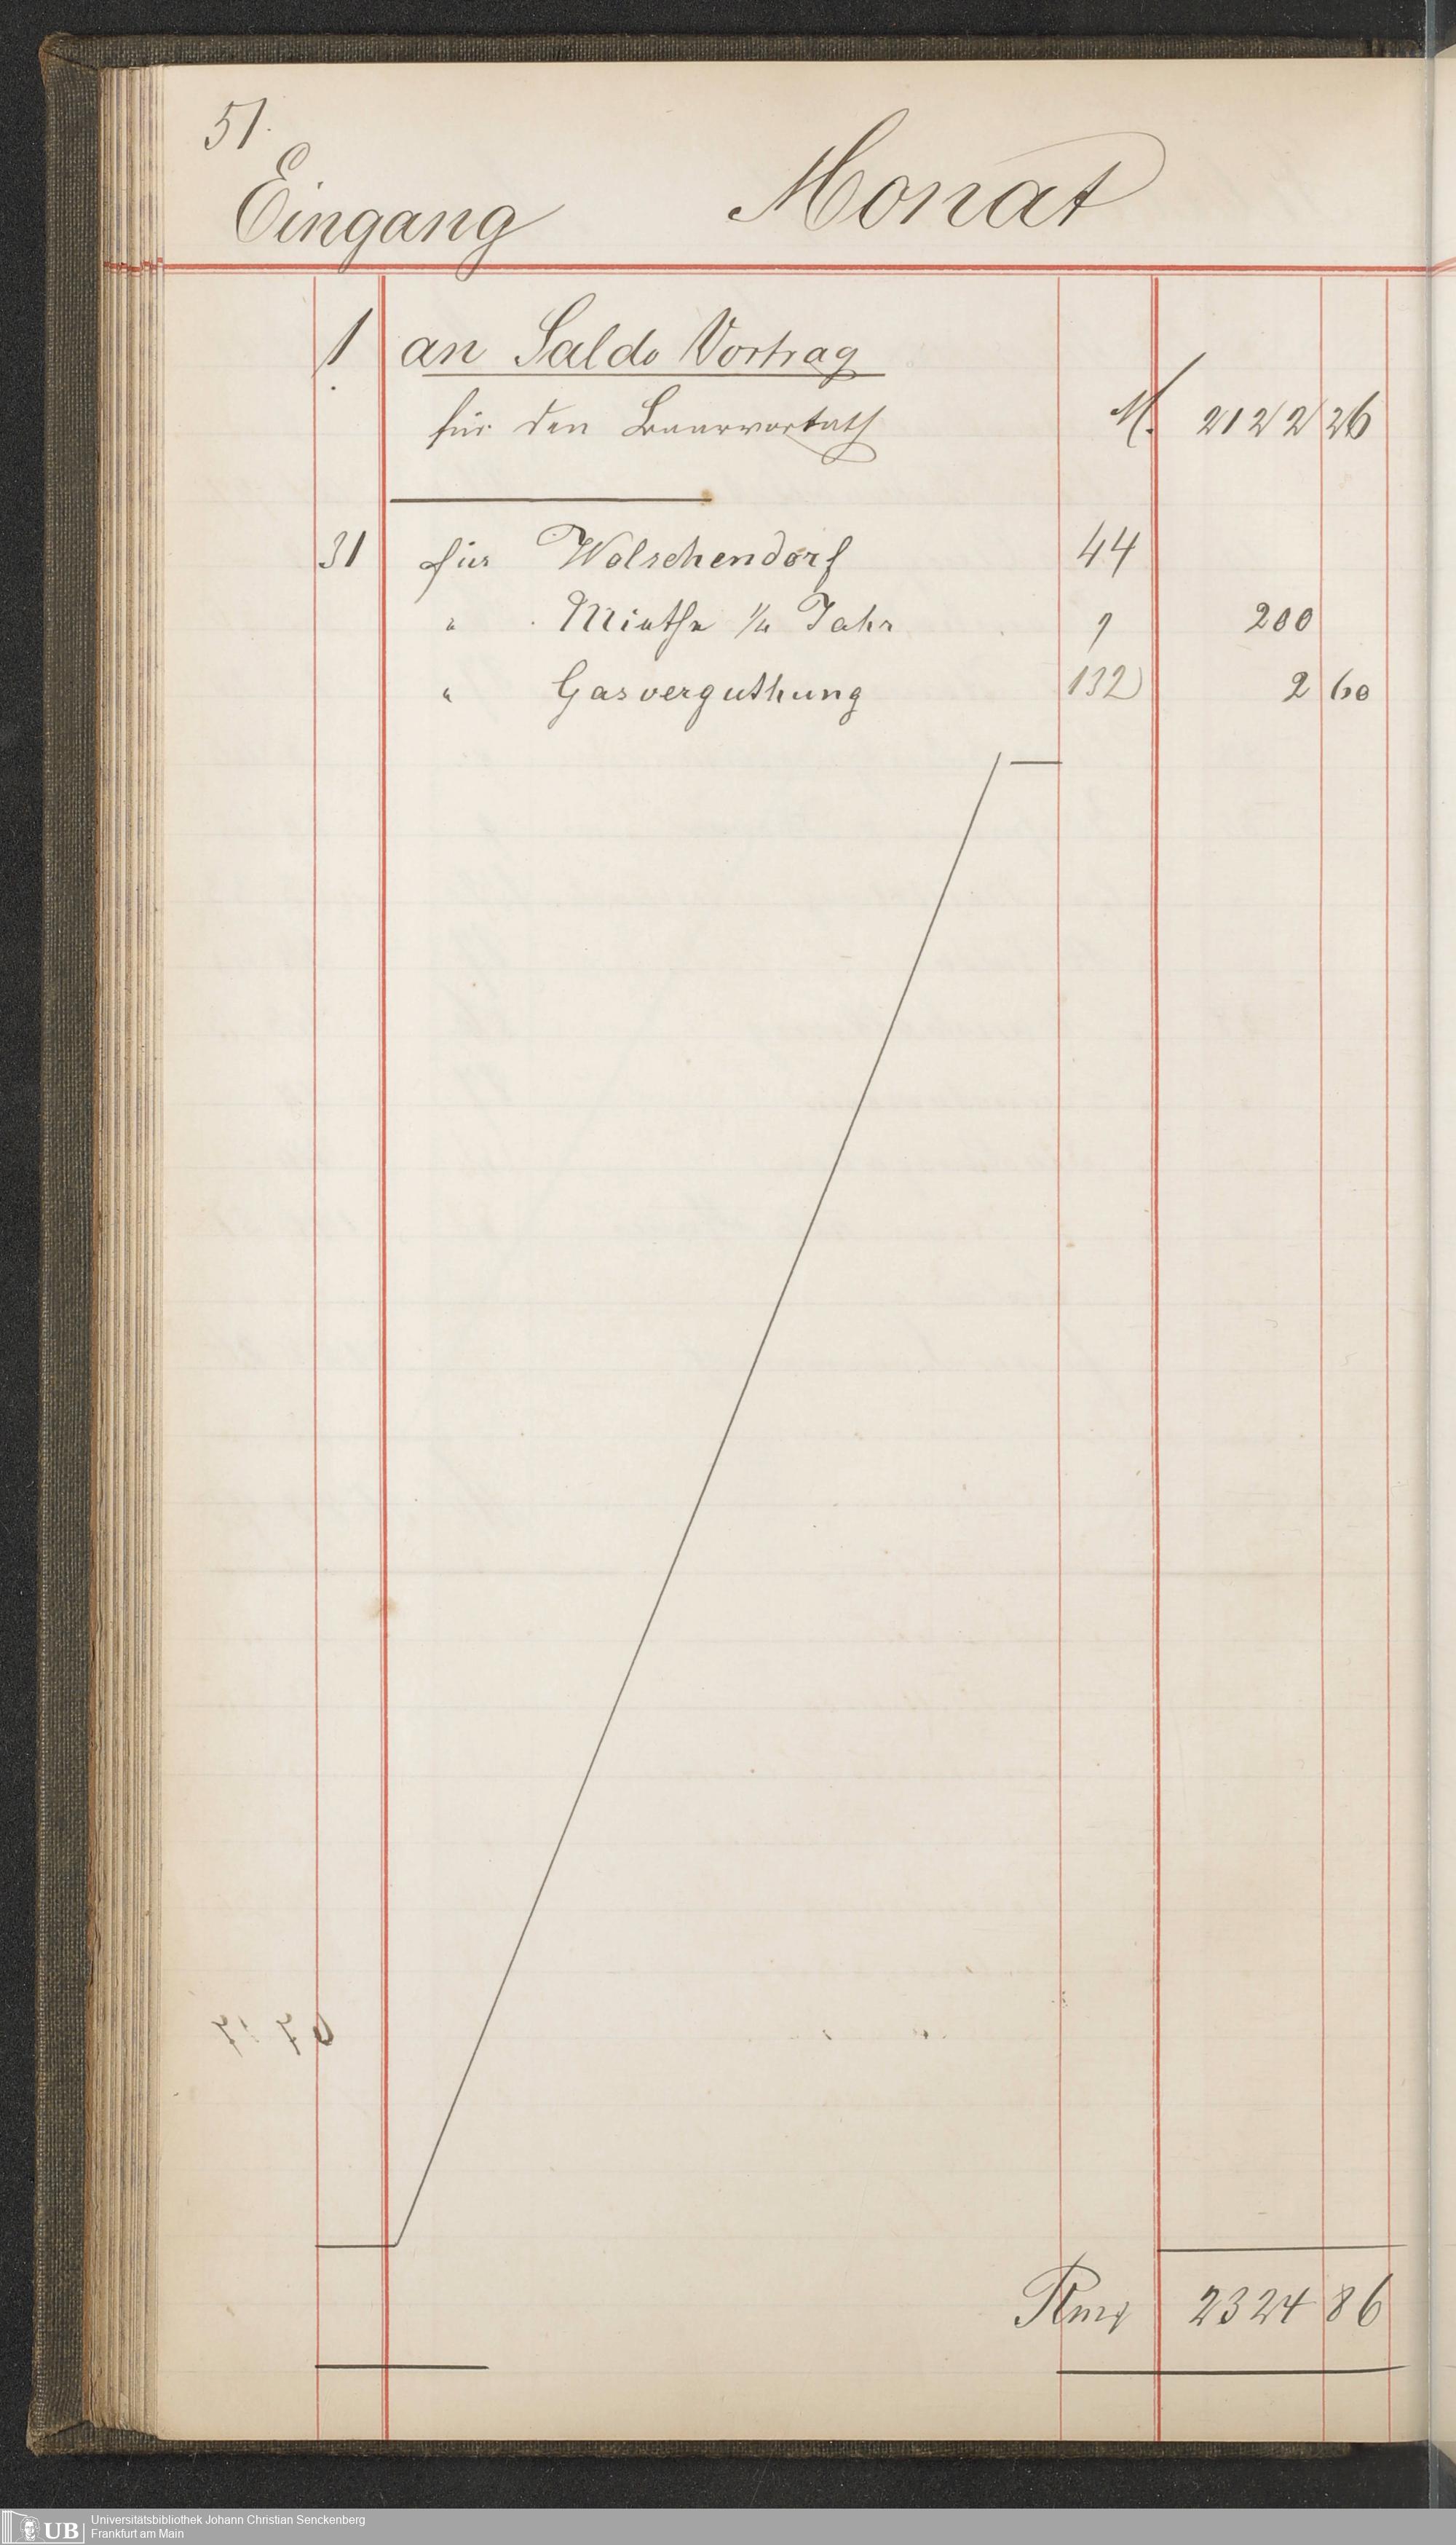 51.
Eingang Monat
1 an Saldo Vortrag
für den Baarvorrath M. 2122 26
31 für Wolschendorf 44
" Miethe 1/4 Jahr 9 200
" Gasverguthung 132 2 60
Rmk 2324 86
Universitätsbibliothek Johann Christian Senckenberg
UB Frankfurt am Main